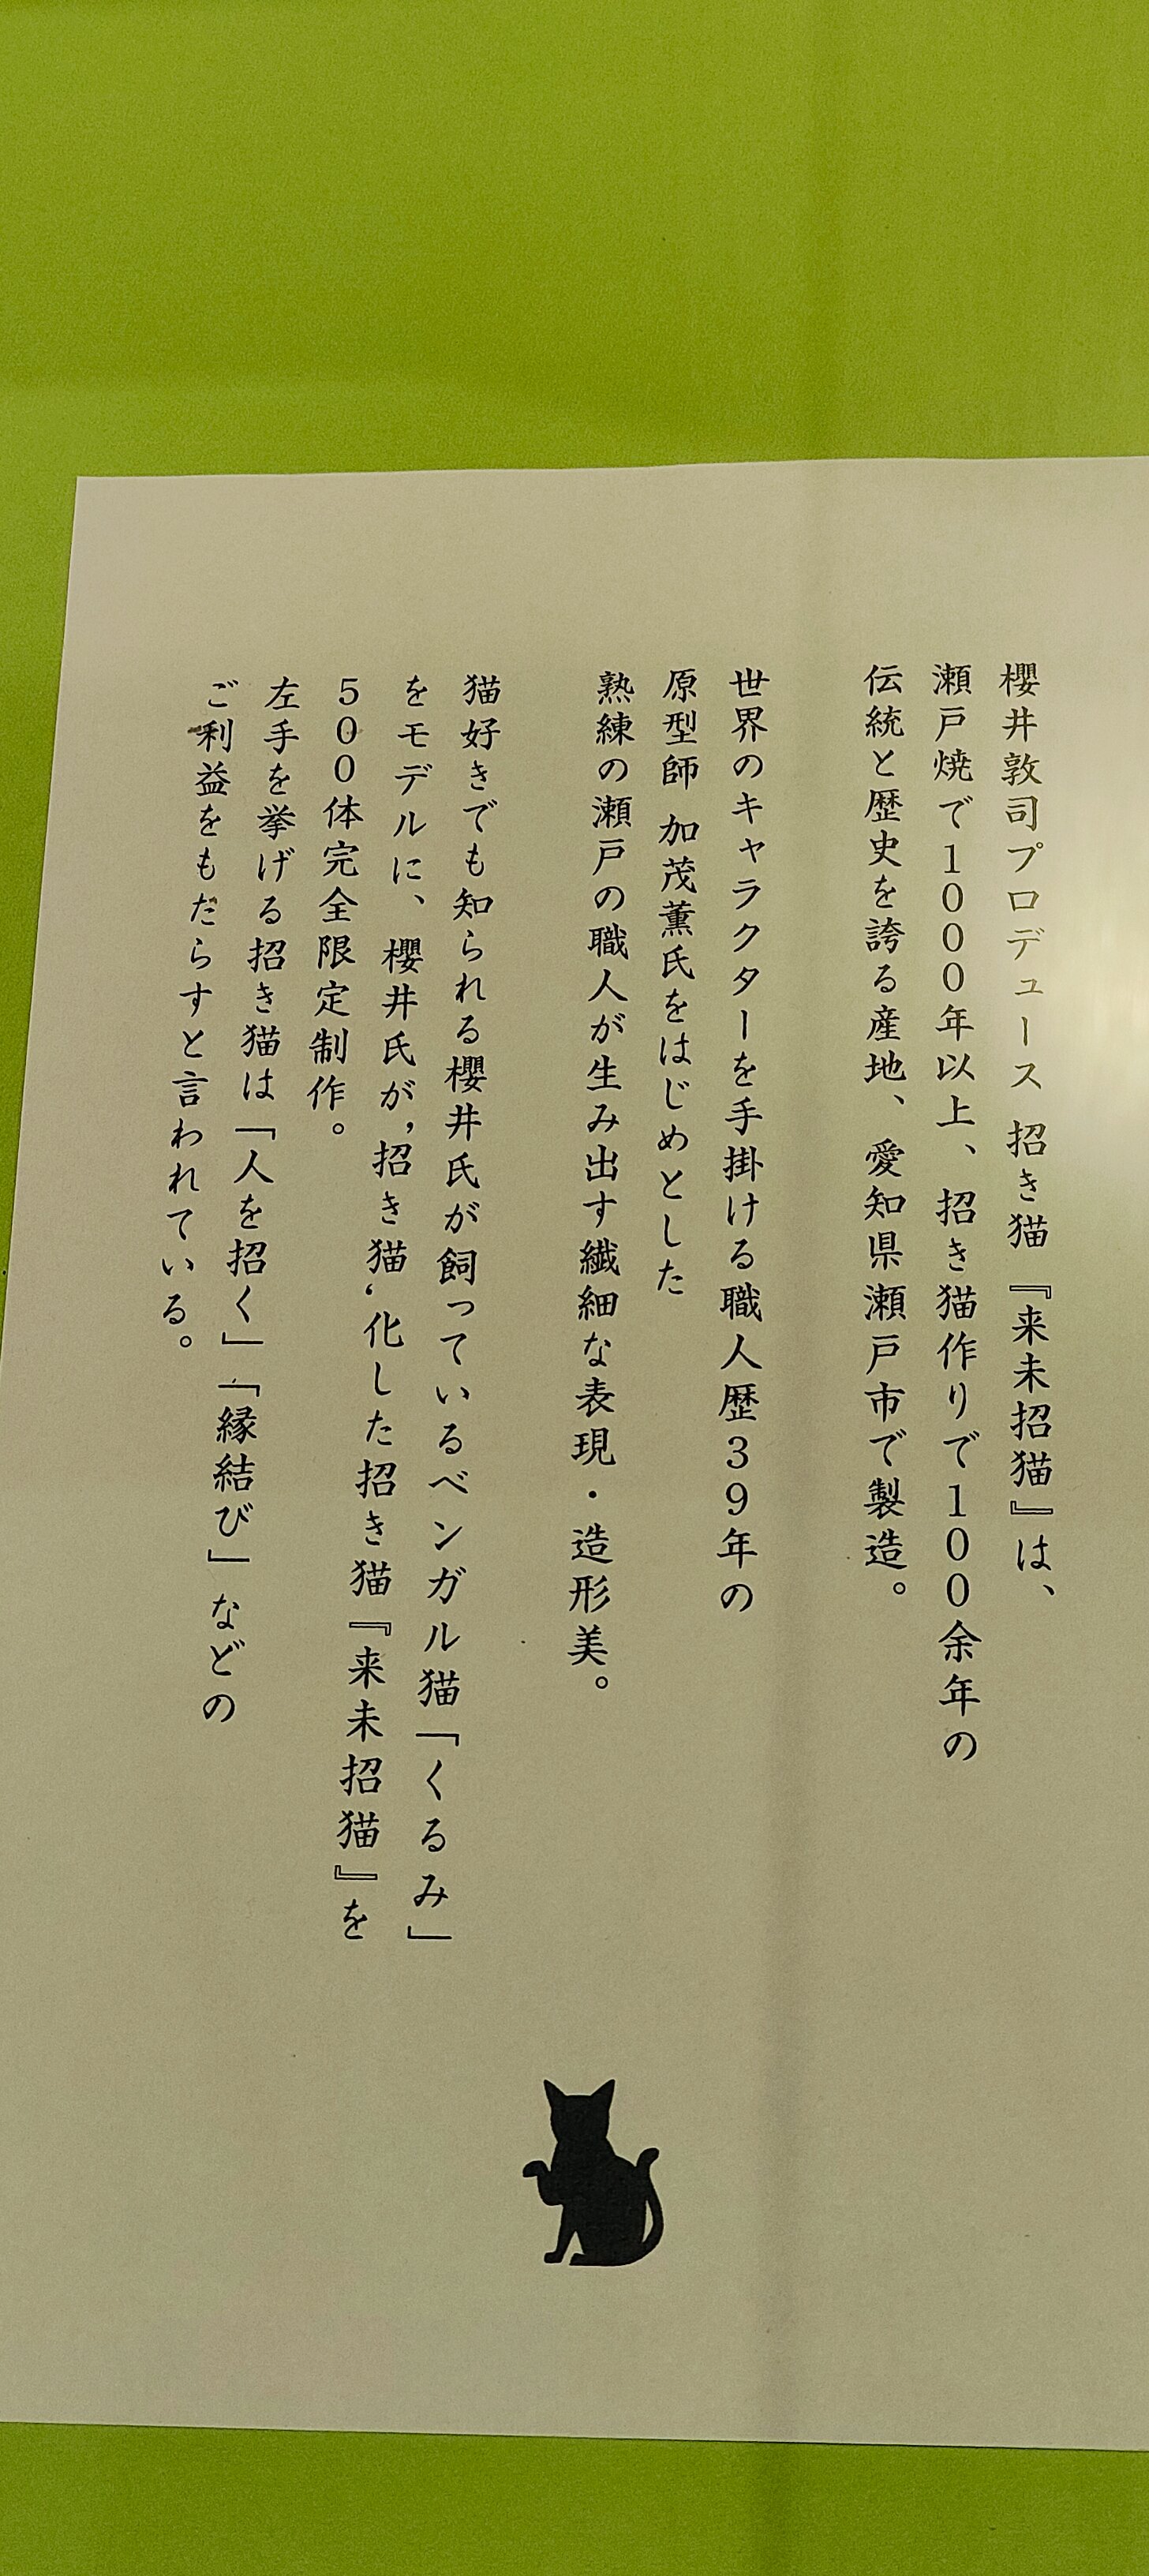 櫻井敦司プロデュース 招き猫 『来未招猫』は、
瀬戸焼で1000年以上、招き猫作りで100余年の
伝統と歴史を誇る産地、愛知県瀬戸市で製造。
世界のキャラクターを手掛ける職人歴39年の
原型師 加茂薫氏をはじめとした
熟練の瀬戸の職人が生み出す繊細な表現・造形美。
猫好きでも知られる櫻井氏が飼っているベンガル猫「くるみ」
をモデルに、櫻井氏が’招き猫‘化した招き猫『来未招猫』を
500体完全限定制作。
左手を挙げる招き猫は「人を招く」「縁結び」などの
ご利益をもたらすと言われている。